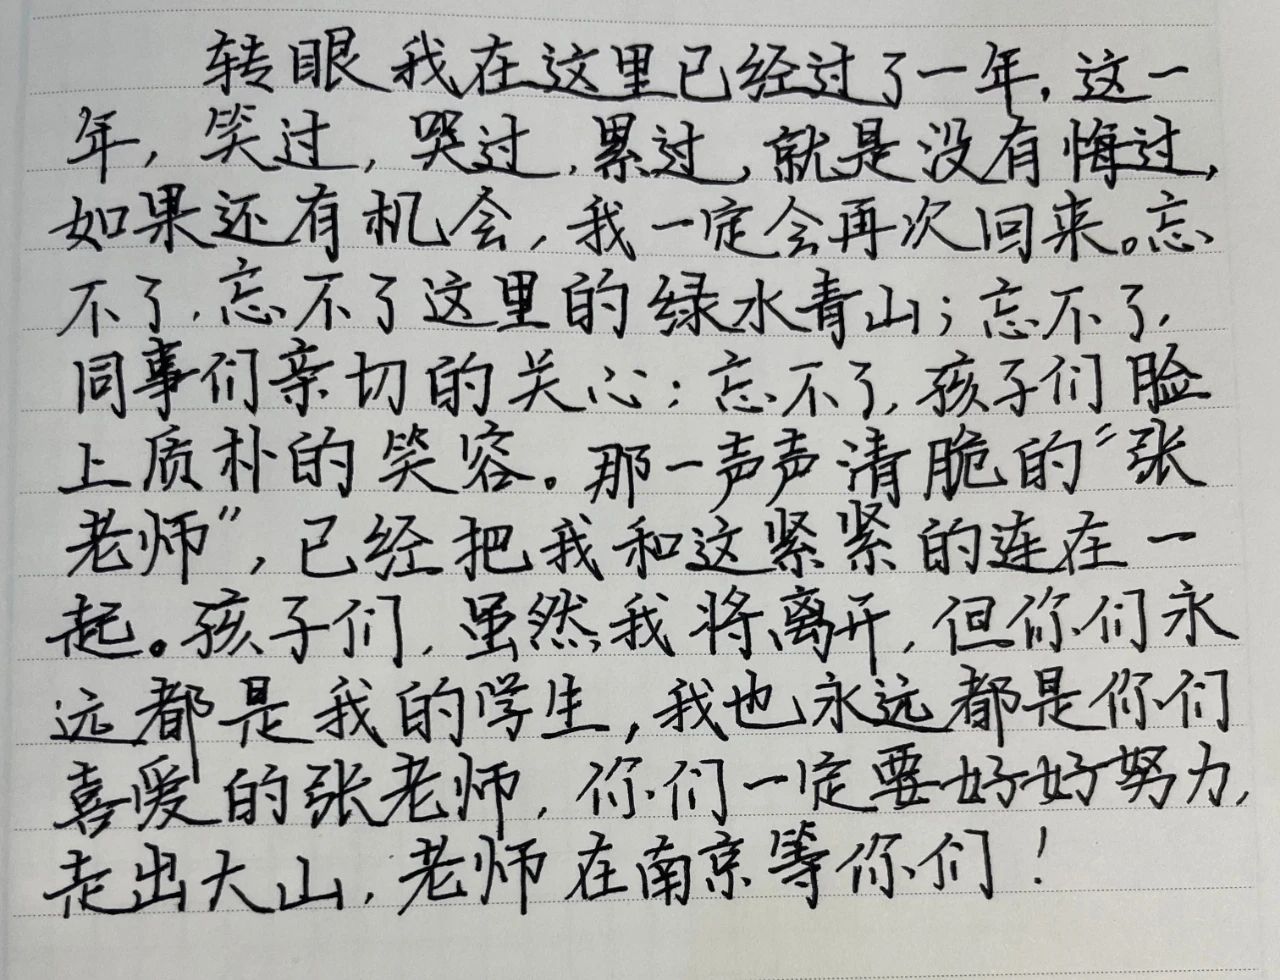 转眼我在这里已经过了一年,这一
年,笑过,哭过,累过,就是没有悔过,
如果还有机会,我一定会再次回来。忘
不了,忘不了这里的绿水青山;忘不了,
同事们亲切的关心;忘不了,孩子们脸
上质朴的笑容。那一声声清脆的“张
老师”,已经把我和这紧紧的连在一
起。孩子们,虽然我将离开,但你们永
远都是我的学生,我也永远都是你们
喜爱的张老师,你们一定要好好努力,
走出大山,老师在南京等你们!